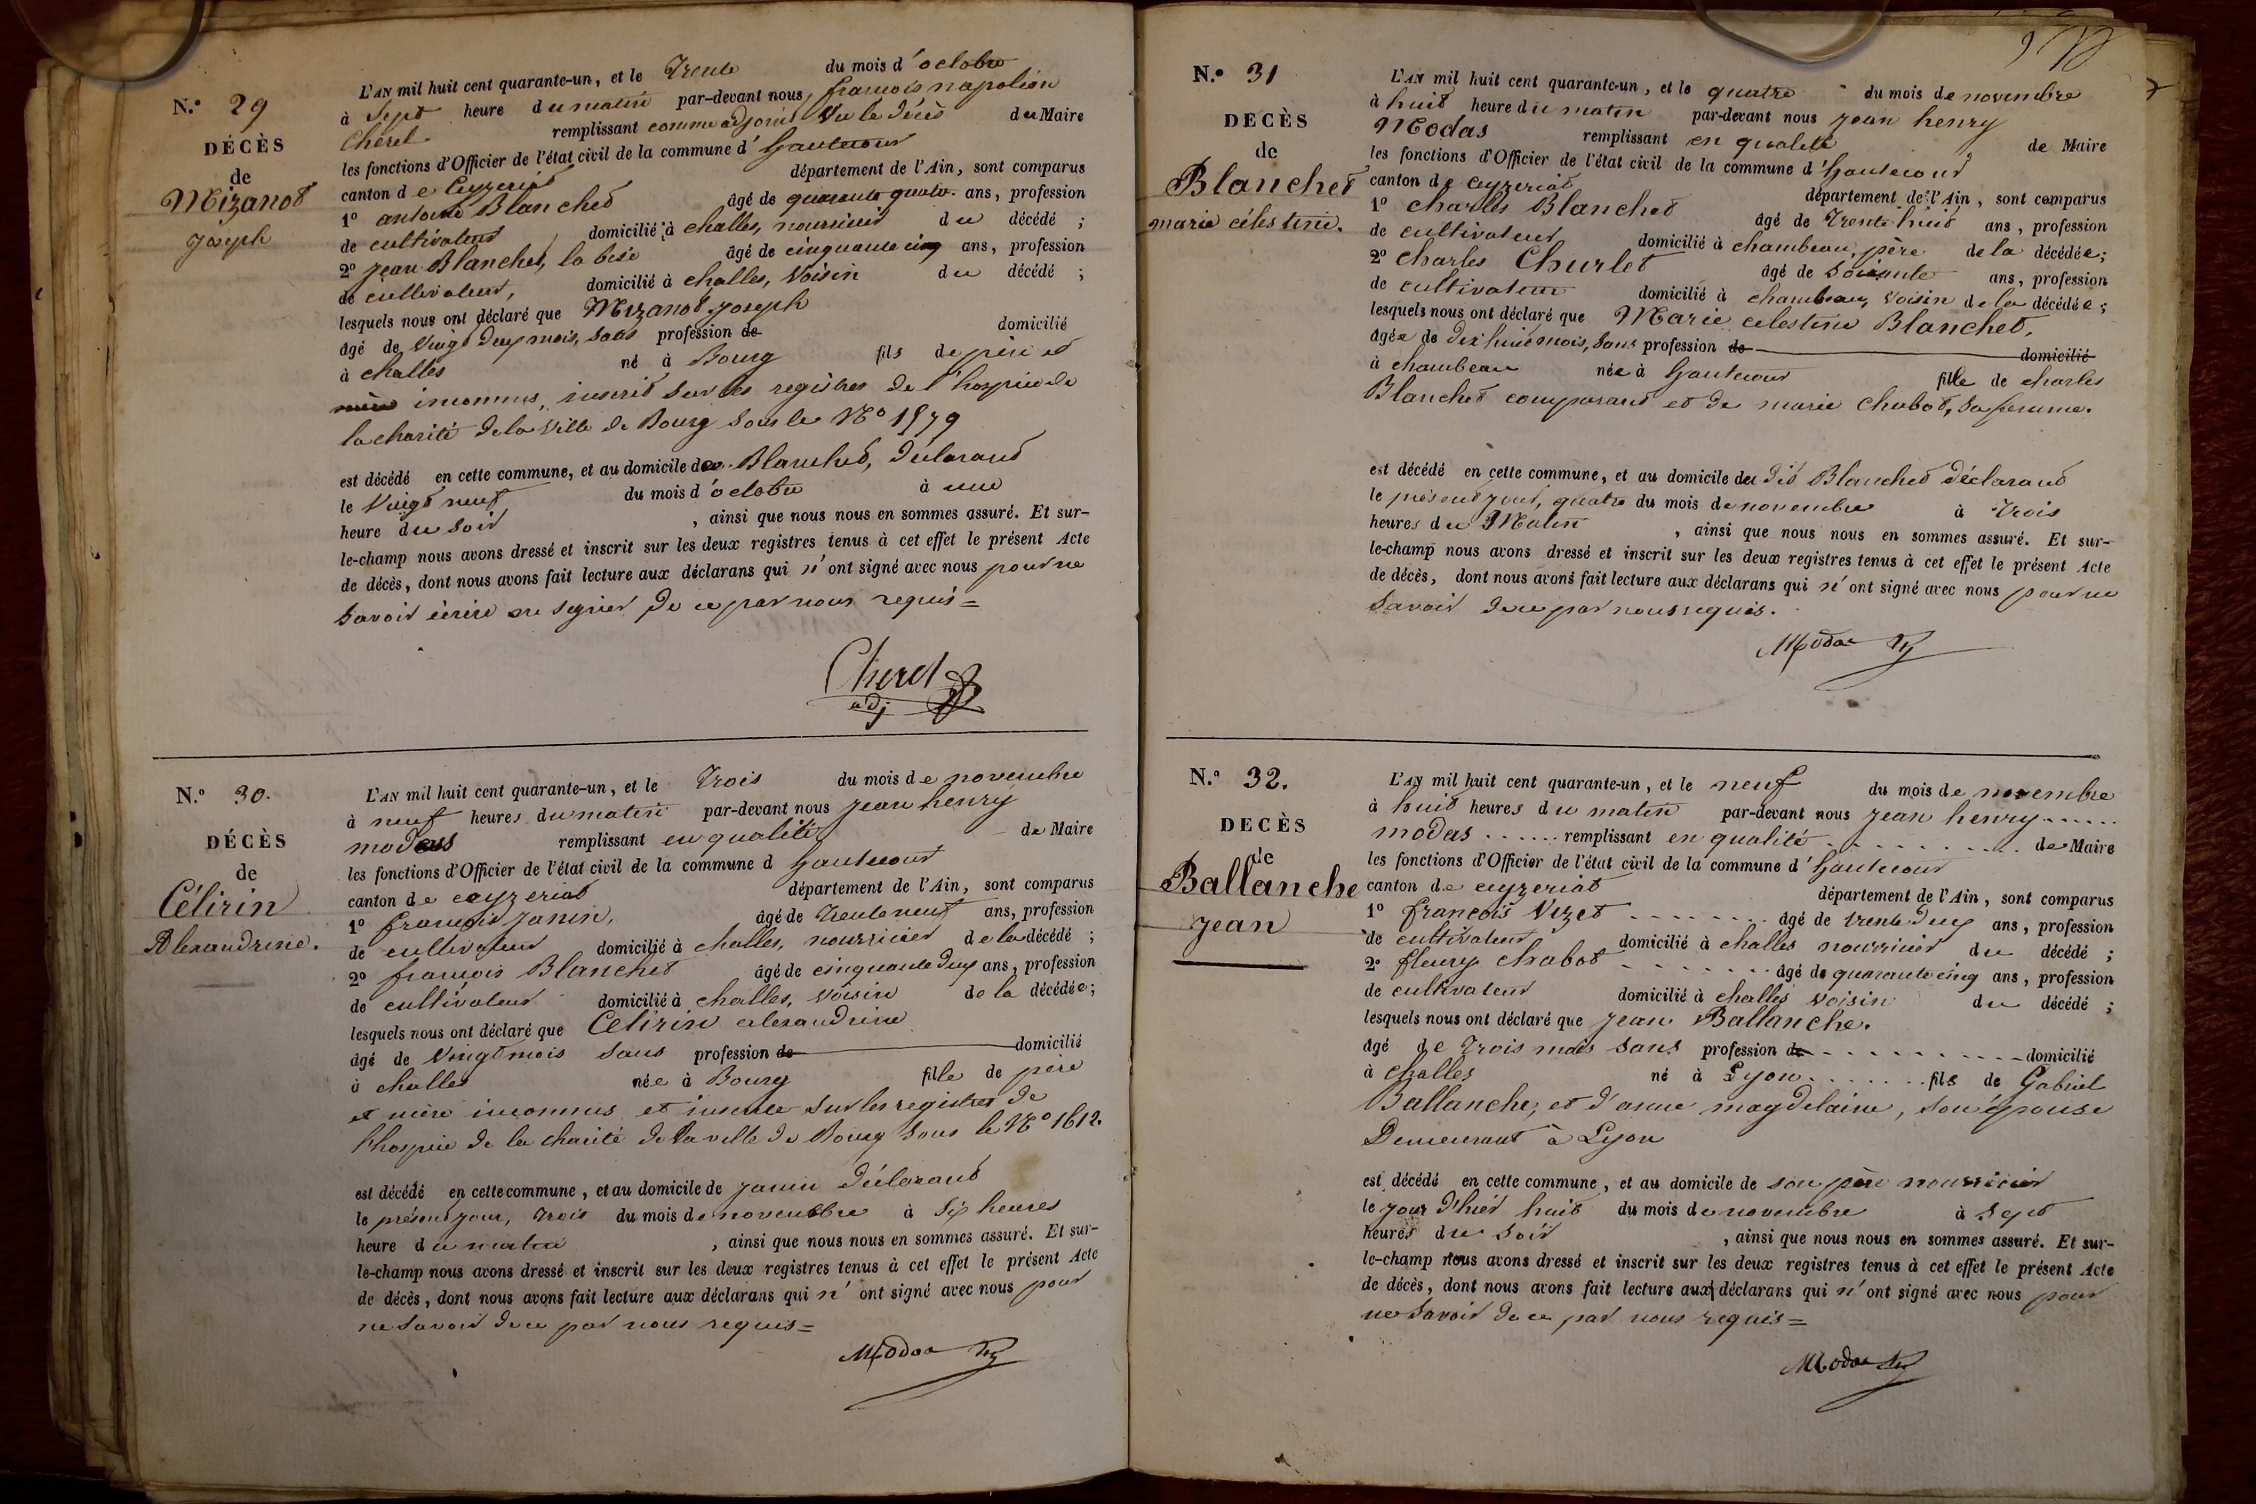 N.° 29
DÉCÈS
de
Mizanot
joseph
L'AN mil huit cent quarante-un, et le Trente du mois d'octobre
à Sept heure du matin par-devant nous françois napoléon
Cherel remplissant comme adjoint Vu le décès du Maire
les fonctions d'Officier de l'état civil de la commune d'hautecour
canton de Ceyzeriat département de l'Ain, sont comparus
1° antoine Blanchet âgé de quarante quatre ans, profession
de cultivateur, domicilié à challes, nourricier du décédé ;
2° jean Blanchet, la bise âgé de cinquante cinq ans, profession
de cultivateur, domicilié à challes, Voisin du décédé ;
lesquels nous ont déclaré que Mizanot joseph
âgé de Vingt deux mois, sans profession de domicilié
à challes né à Bourg fils de père et
mère inconnus, inscrit sur les registres de l'hospice de
la charité de la Ville de Bourg sous le N° 1579
est décédé en cette commune, et au domicile de Blanchet, déclarant
le Vingt neuf du mois d'octobre à une
heure du soir , ainsi que nous nous en sommes assuré. Et sur-
le-champ nous avons dressé et inscrit sur les deux registres tenus à cet effet le présent Acte
de décès, dont nous avons fait lecture aux déclarans qui n'ont signé avec nous pour ne
savoir écrire ne signer de ce par nous requis =
Cherel
adj
N.° 30.
DÉCÈS
de
Célirin
Alexandrine.
L'AN mil huit cent quarante-un, et le Trois du mois de novembre
à neuf heures du matin par-devant nous jean henry
modas remplissant en qualité de Maire
les fonctions d'Officier de l'état civil de la commune d hautecour
canton de ceyzeriat département de l'Ain, sont comparus
1° françois janin, âgé de Trente neuf ans, profession
de cultivateur domicilié à challes, nourricier de la décédé ;
2° françois Blanchet âgé de cinquante deux ans, profession
de cultivateur domicilié à challes, Voisin de la décédée ;
lesquels nous ont déclaré que Célirin alexandrine
âgé de Vingt mois sans profession de domicilié
à challes née à Bourg fille de père
et mère inconnus et inscrite sur les registres de
l'hospice de la charité de la ville de Bourg sous le N° 1612.
est décédé en cette commune, et au domicile de janin déclarant
le présent jour, trois du mois de novembre à Six heures
heure du matin , ainsi que nous nous en sommes assuré. Et sur-
le-champ nous avons dressé et inscrit sur les deux registres tenus à cet effet le présent Acte
de décès, dont nous avons fait lecture aux déclarans qui n'ont signé avec nous pour
ne savoir de ce par nous requis =
Modas
N.° 31
DECÈS
de
Blanchet
marie célestine.
L'AN mil huit cent quarante-un, et le quatre du mois de novembre
à huit heure du matin par-devant nous jean henry
Modas remplissant en qualité de Maire
les fonctions d'Officier de l'état civil de la commune d'hautecour
canton de ceyzeriat département de l'Ain, sont comparus
1° charles Blanchet âgé de Trente huit ans, profession
de cultivateur domicilié à chambeau, père de la décédée ;
2° charles Churlet âgé de soixante ans, profession
de cultivateur domicilié à chambeau, voisin de la décédée ;
lesquels nous ont déclaré que Marie celestine Blanchet,
âgée de dix huit mois, sans profession de domicilié
à chambeau née à hautecour fille de charles
Blanchet comparant et de marie chabot, sa femme.
est décédé en cette commune, et au domicile du dit Blanchet déclarant
le présent jour, quatre du mois de novembre à Trois
heures du Matin , ainsi que nous nous en sommes assuré. Et sur-
le-champ nous avons dressé et inscrit sur les deux registres tenus à cet effet le présent Acte
de décès, dont nous avons fait lecture aux déclarans qui n'ont signé avec nous pour ne
savoir de ce par nous requis.
Modas
N.° 32.
DECÈS
de
Ballanche
jean
L'AN mil huit cent quarante-un, et le neuf du mois de novembre
à huit heures du matin par-devant nous jean henry
modas remplissant en qualité de Maire
les fonctions d'Officier de l'état civil de la commune d'hautecour
canton de ceyzeriat département de l'Ain, sont comparus
1° françois Vizet âgé de trente deux ans, profession
de cultivateur domicilié à challes nourricier du décédé ;
2° fleury chabot âgé de quarante cinq ans, profession
de cultivateur domicilié à challes voisin du décédé ;
lesquels nous ont déclaré que jean Ballanche.
âgé de Trois mois sans profession de domicilié
à challes né à Lyon fils de Gabriel
Ballanche, et d'anne magdelaine, son épouse
Demeurant à Lyon
est décédé en cette commune, et au domicile de son père nourricier
le jour d'hier huit du mois de novembre à sept
heures du soir , ainsi que nous nous en sommes assuré. Et sur-
le-champ nous avons dressé et inscrit sur les deux registres tenus à cet effet le présent Acte
de décès, dont nous avons fait lecture aux déclarans qui n'ont signé avec nous pour
ne savoir de ce par nous requis =
Modas